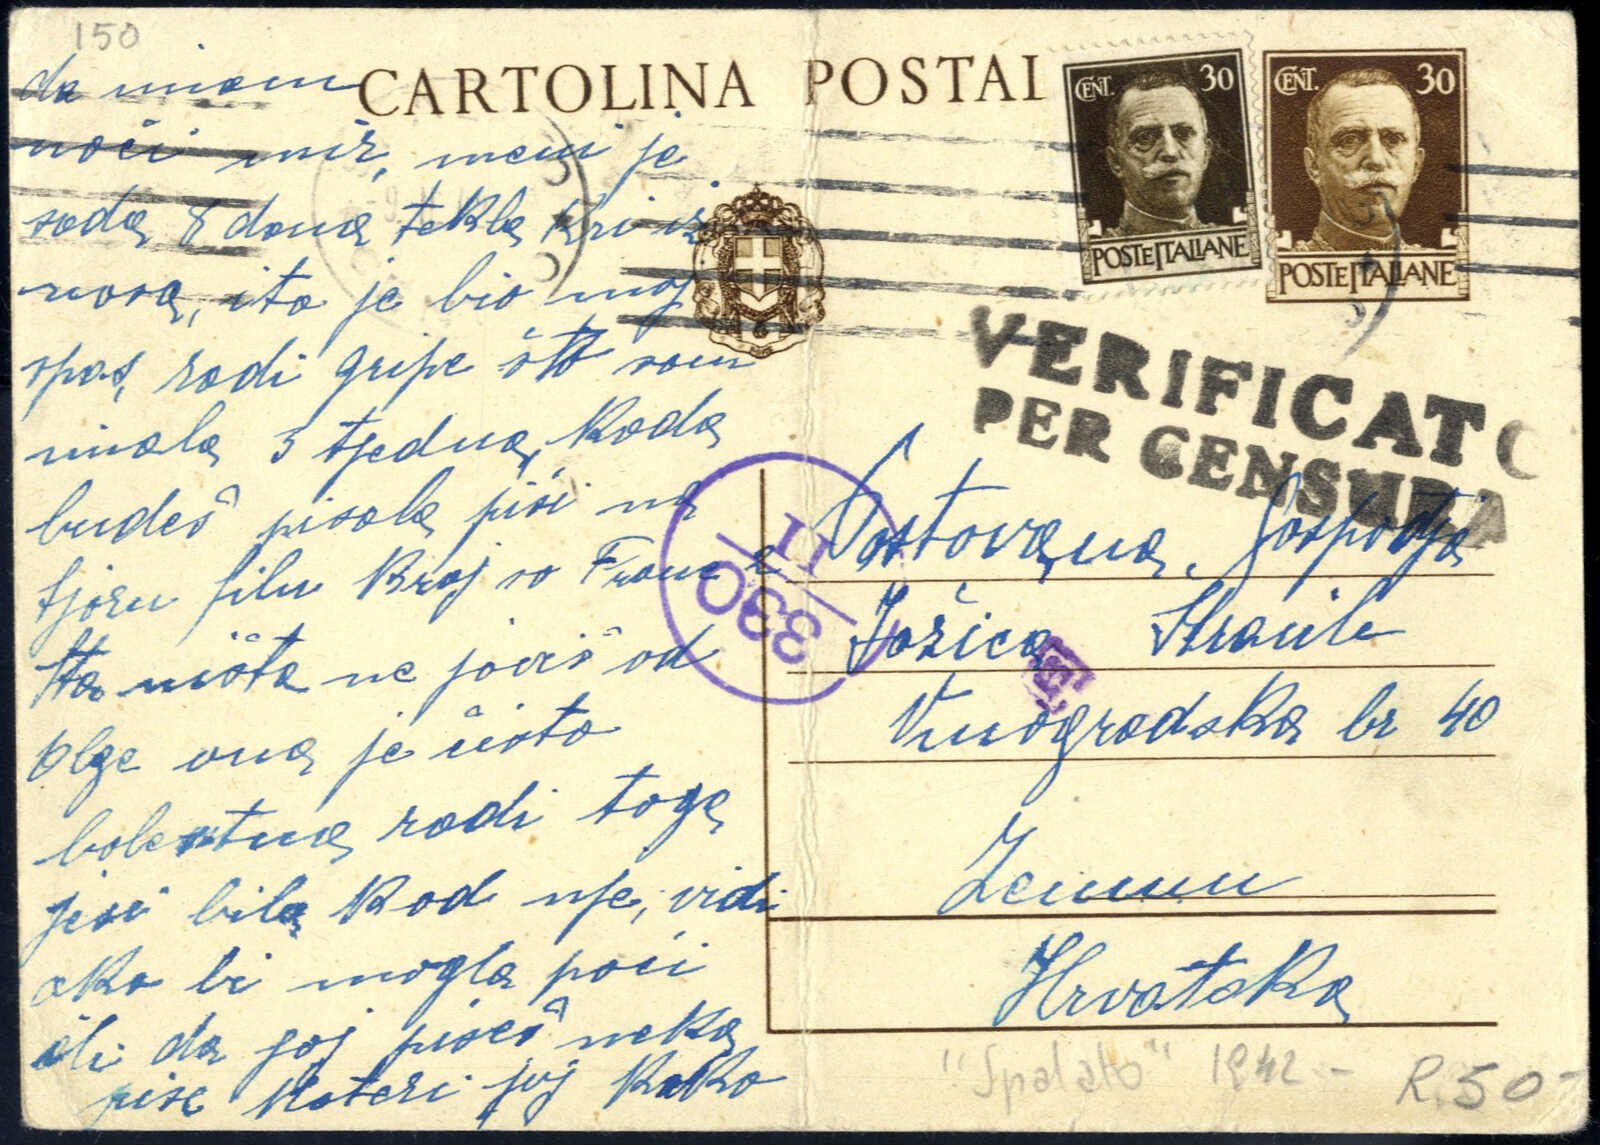 150
CARTOLINA POSTAL
CENT. 30
POSTE ITALIANE
CENT. 30
POSTE ITALIANE
VERIFICATO
PER CENSURA
da imam
noći mir, meni je
sada 8 dana tekla krv iz
nosa, i to je bio moj
spas, radi gripe što sam
imala 3 tjedna, kada
budeš pisala piši na
kraj
ništa ne javiš od
Olge ona je čisto
bolestna radi toga
jesi bila kod nje, vidi
ako bi mogla poći
ili da joj pišeš neka
piše materi joj kako
330
II
Poštovana Gospodja
Jožica
Vinogradska br 40
Zemun
Hrvatska
"Spalato" 1942 -
R. 50 -